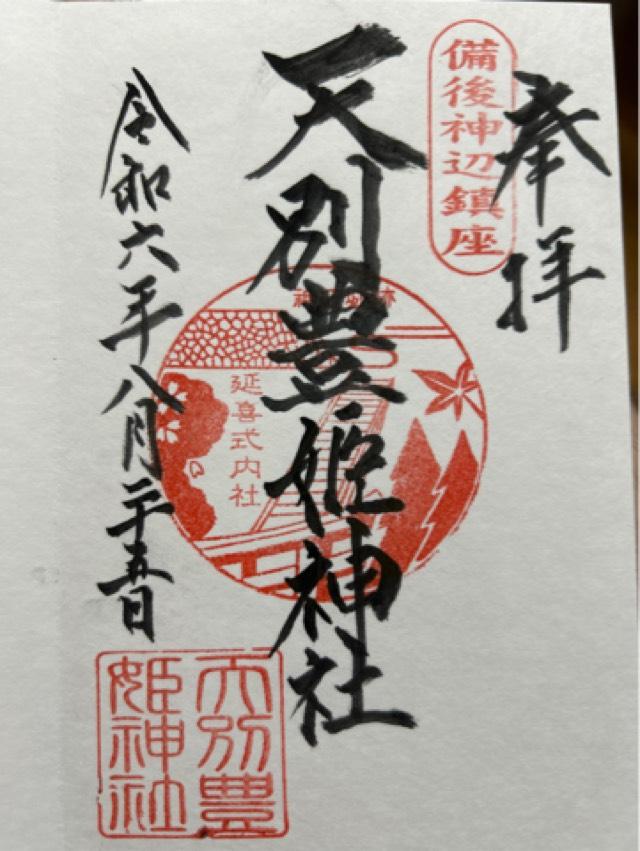 奉拝
備後神辺鎮座
天別豊姫神社
延喜式内社
令和六年八月二十五日
天別豊
姫神社